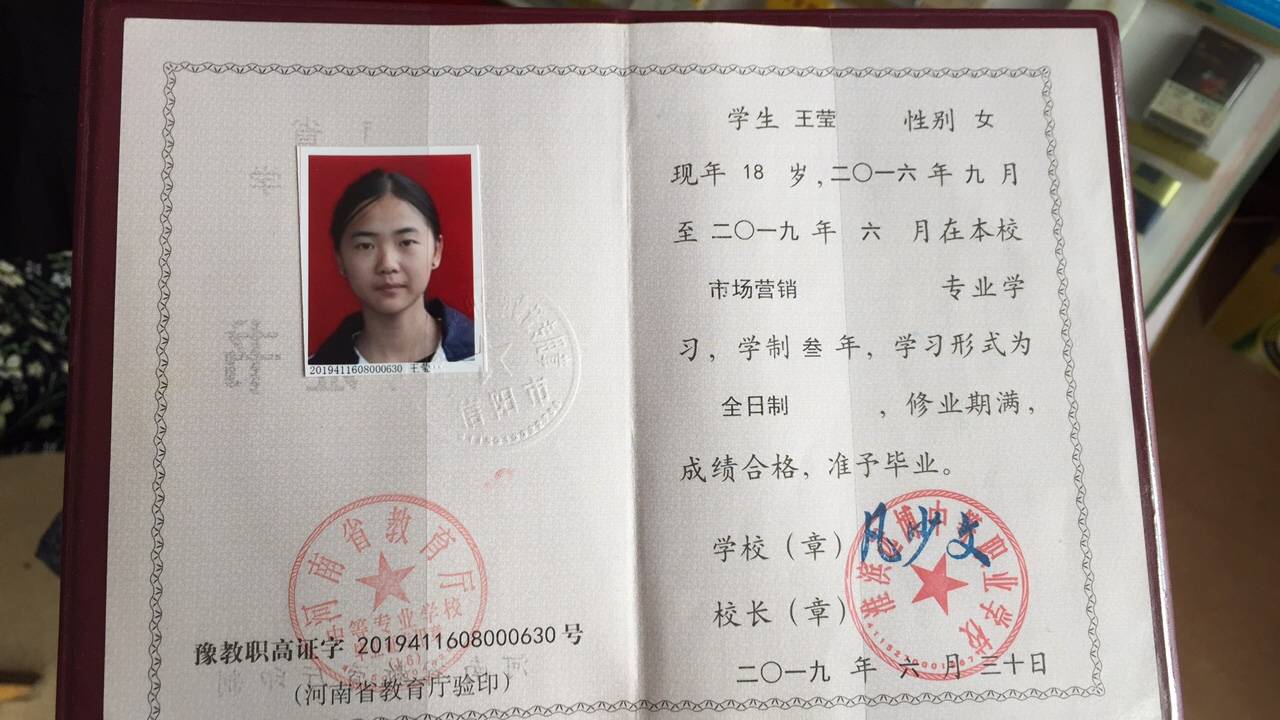 2019411608000630 王莹
信阳市
河南省教育厅
中等专业学校
豫教职高证字 2019411608000630 号
(河南省教育厅验印)
学生 王莹 性别 女
现年 18 岁,二〇一六 年 九 月
至 二〇一九 年 六 月在本校
市场营销 专业学
习，学制 叁 年，学习形式为
全日制 ，修业期满，
成绩合格，准予毕业。
学校（章）
凡少文
校长（章）
职业学校
二〇一九 年 六 月 三十日